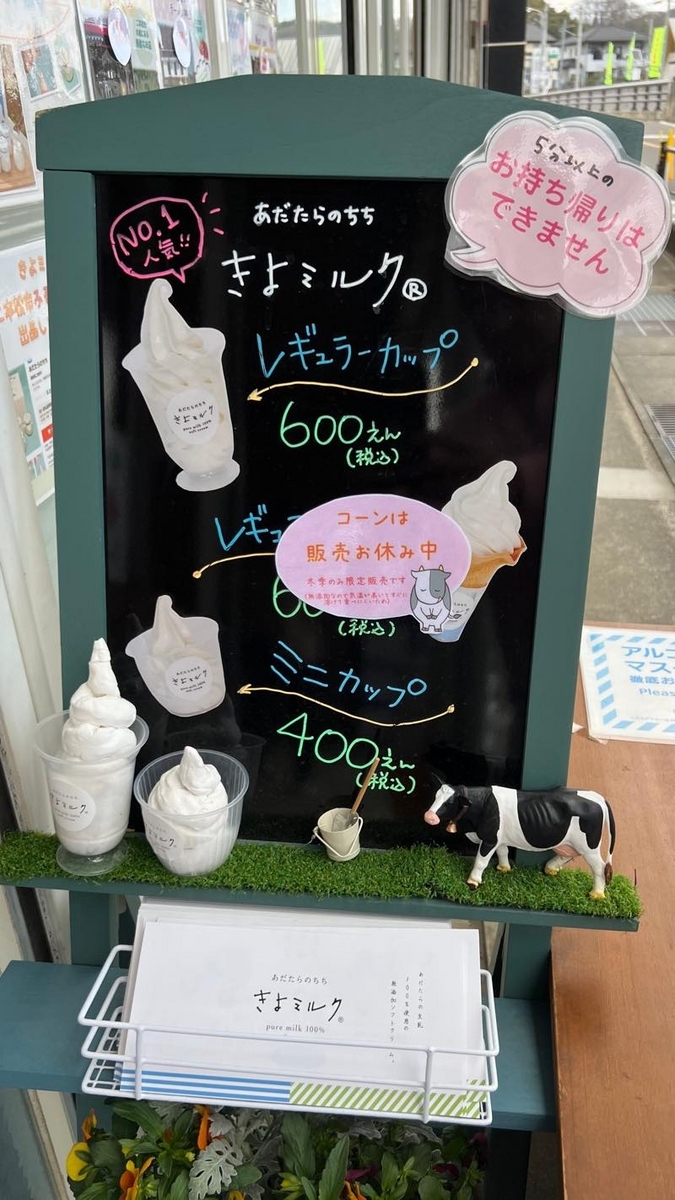 5分以上の
お持ち帰りは
できません
NO.1
人気!!
あだたらのちち
きよミルク®
レギュラーカップ
600えん
(税込)
あだたらのちち
きよミルク
pure milk 100%
soft cream
レギュ
コーンは
販売お休み中
冬季のみ限定販売です
60
(税込)
ミニカップ
400えん
(税込)
きよミルク
きよミルク
きよミルク
アルコ
マス
徹底お
Pleas
あだたらのちち
きよミルク®
pure milk 100%
あだたらの生乳
100%使用の
無添加ソフトクリーム。